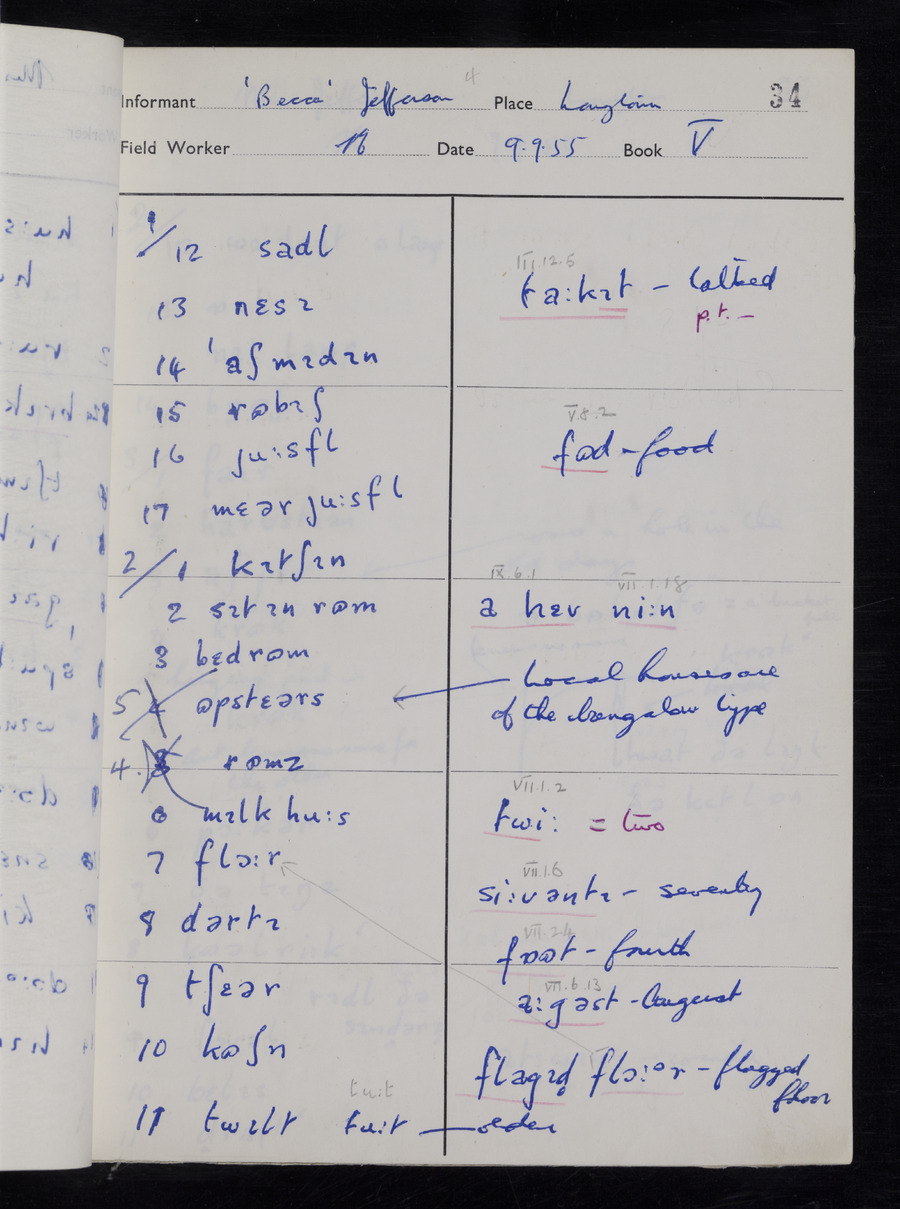 Informant 'Becca' Jefferson 4 Place Longtown 34
Field Worker Date 9.9.55 Book V
1/12 sadl
13 nɛsɪ
14 'aʃmɪdɪn
15 rɷbɪʃ
16 ju:sfl
17 mɛər ju:sfl
2/1 kɪtʃɪn
2 sɪtɪn rɷm
3 bɛdrɷm
5 ɷpstɛərs
4. rɷmz
6 mɪlk hu:s
7 flɔ:r
8 dərtɪ
9 tʃɛər
10 kɷʃn
tu:t
11 twɪlt tu:t — older
III.12.5
ta:kɪt – talked
p.t. –
V.8.2
fɷd – food
IX.6.1 VII.1.18
a hɛv ni:n
Local houses are
of the bungalow type
VII.1.2
twi: = two
VII.1.6
si:vəntɪ – seventy
VII.2.4
– fourth
VII.6.13
– August
flagɪd flɔ:ər – flagged
floor